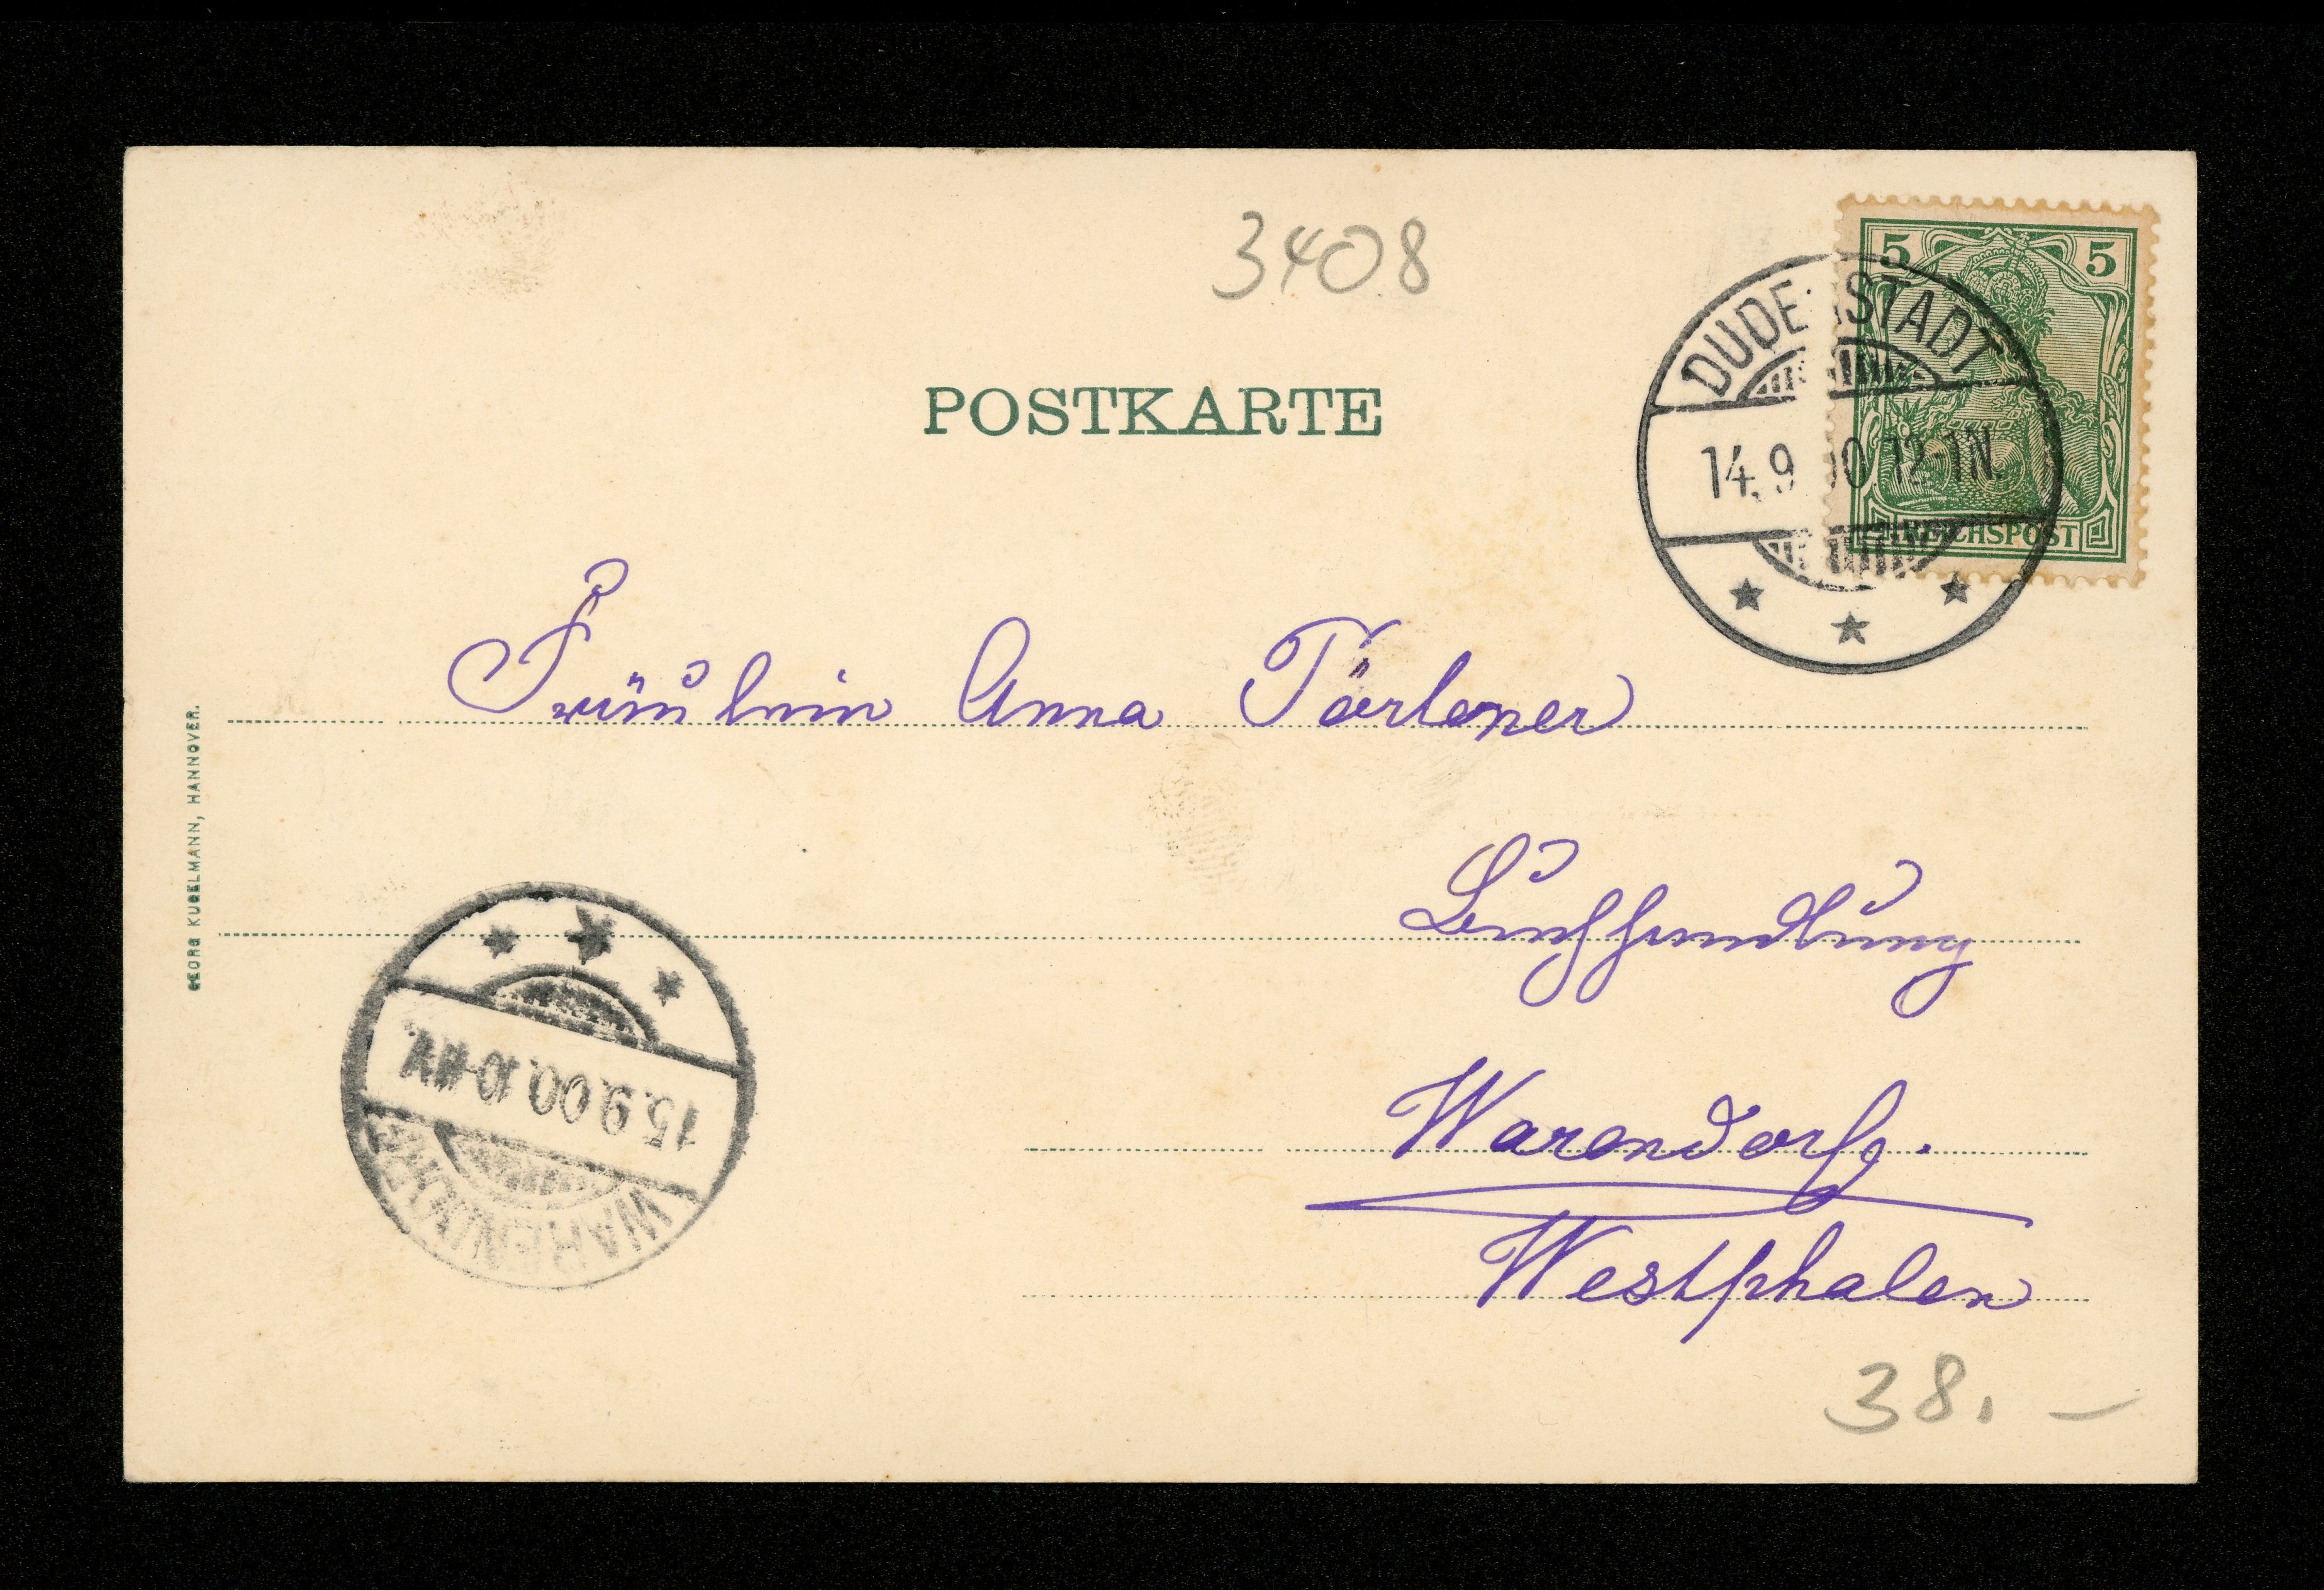 3408
5 5
DUDERSTADT
14.9.00.12-1N.
REICHSPOST
POSTKARTE
Fräulein Anna
Buchhandlung
Warendorf.
Westphalen
GEORG KUGELMANN, HANNOVER.
15.9.00.10-11V.
WARENDORF
38.–